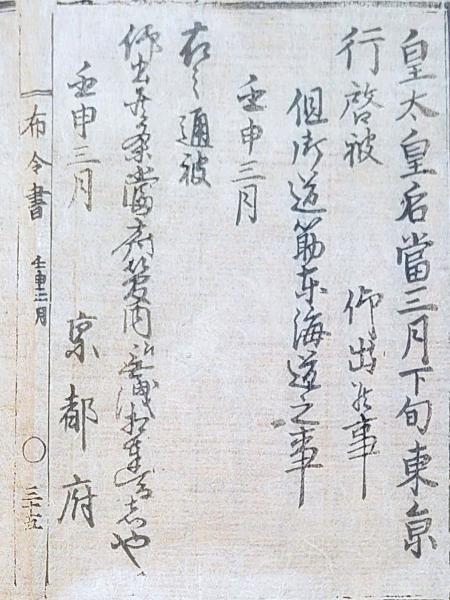 皇太皇后當三月下旬東京
行啓被 仰出候事
但御道筋東海道之事
壬申三月
右之通被
仰出候条當府管内江無洩相達るもの也
壬申三月 京都府
布令書 壬申三月 〇 三十五